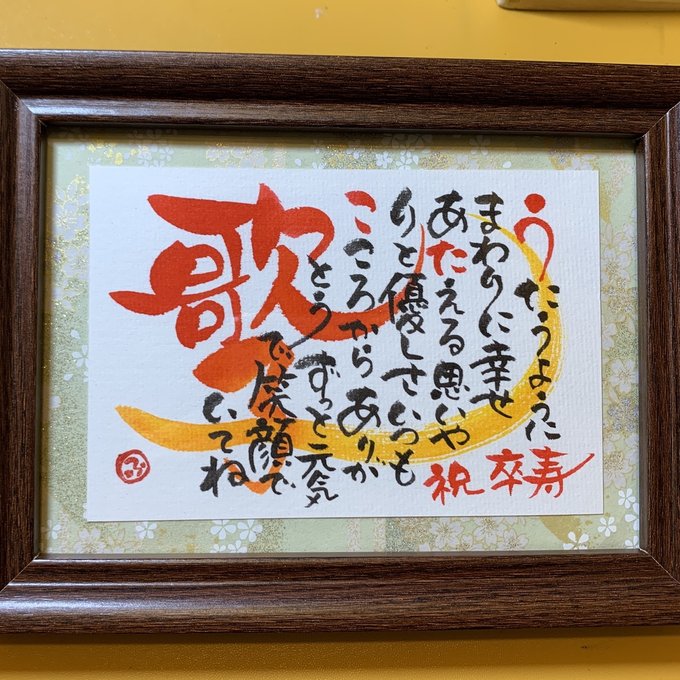 うたうように
まわりに幸せ
あたえる思いや
りと優しさいつも
こころからありが
とう ずっと元気
で笑顔で
いてね
歌
祝 卒寿